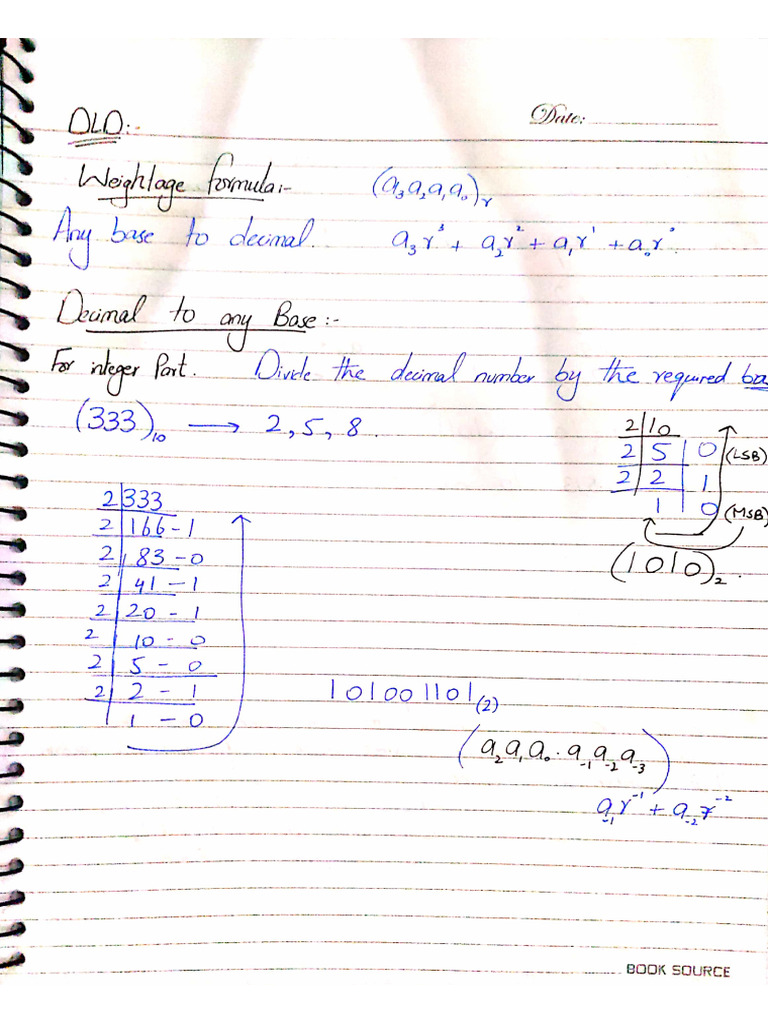 Date:
DLD:-
Weightage formula:- (a₃a₂a₁a₀)ᵣ
Any base to decimal. a₃r³ + a₂r² + a₁r¹ + a₀r⁰
Decimal to any Base:-
For integer Part. Divide the decimal number by the required ba
(333)₁₀ → 2, 5, 8.
2 | 10
2 | 5 | 0 (LSB)
2 | 2 | 1
1 | 0 (MSB)
(1010)₂.
2 | 333
2 | 166 - 1
2 | 83 - 0
2 | 41 - 1
2 | 20 - 1
2 | 10 - 0
2 | 5 - 0
2 | 2 - 1
1 - 0
101001101₍₂₎
(a₂a₁a₀.a₋₁a₋₂a₋₃)
a₋₁r⁻¹ + a₋₂r⁻²
BOOK SOURCE